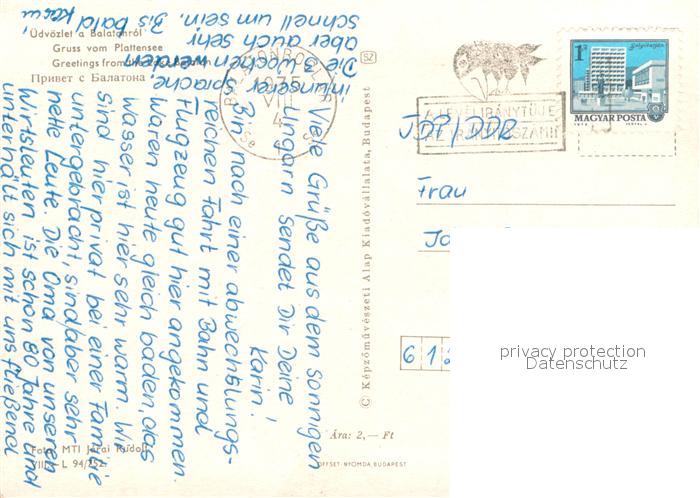 Üdvözlet a Balatonról
Gruss vom Plattensee
Greetings from the
Привет с Балатона
Viele Grüße aus dem sonnigen
Ungarn sendet Dir Deine
Karin!
Bin nach einer abwechslungs-
reichen Fahrt mit Bahn und
Flugzeug gut hier angekommen.
Waren heute gleich baden, das
Wasser ist hier sehr warm. Wir
sind hier privat bei einer Familie
untergebracht, sind aber sehr
nette Leute. Die Oma von unseren
Wirtsleuten ist schon 80 Jahre und
unterhält sich mit uns fließend
in unserer Sprache.
Die 3 Wochen werden
aber auch sehr
schnell um sein. Bis bald
Foto: MTI Járai Rudolf
L 94/752
© Képzőművészeti Alap Kiadóvállalata, Budapest
Ára: 2,— Ft
OFFSET-NYOMDA, BUDAPEST
SZ
A LEVÉL IRÁNYTŰJE
AZ IRÁNYÍTÓSZÁM!
1Ft
MAGYAR POSTA
DDR
Frau
6 1
privacy protection
Datenschutz